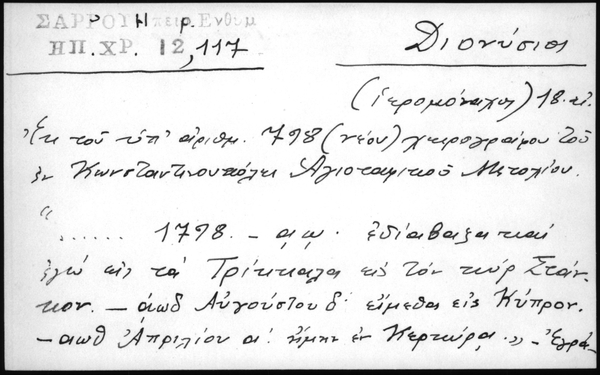 ΣΑΡΡΟΥ Ἠπειρ. Ἐνθυμ
ΗΠ. ΧΡ. 12, 117
Διονύσιος
(ἱερομόναχος) 18. αἰ.
Ἐκ τοῦ ὑπ' ἀριθμ. 798 (νέου) χειρογράφου τοῦ
ἐν Κωνσταντινουπόλει Ἁγιοταφιτικοῦ Μετοχίου.
"...... 1798. – αψ. ἐδιάβαζα καὶ
ἐγὼ εἰς τὰ Τρίκκαλα εἰς τὸν κὺρ Στάν-
κον. – αωδ Αὐγούστου δ' εἴμεθα εἰς Κύπρον.
– αωθ Ἀπριλίου α'. ἤμην ἐν Κερκύρᾳ." – Ἐγρά-